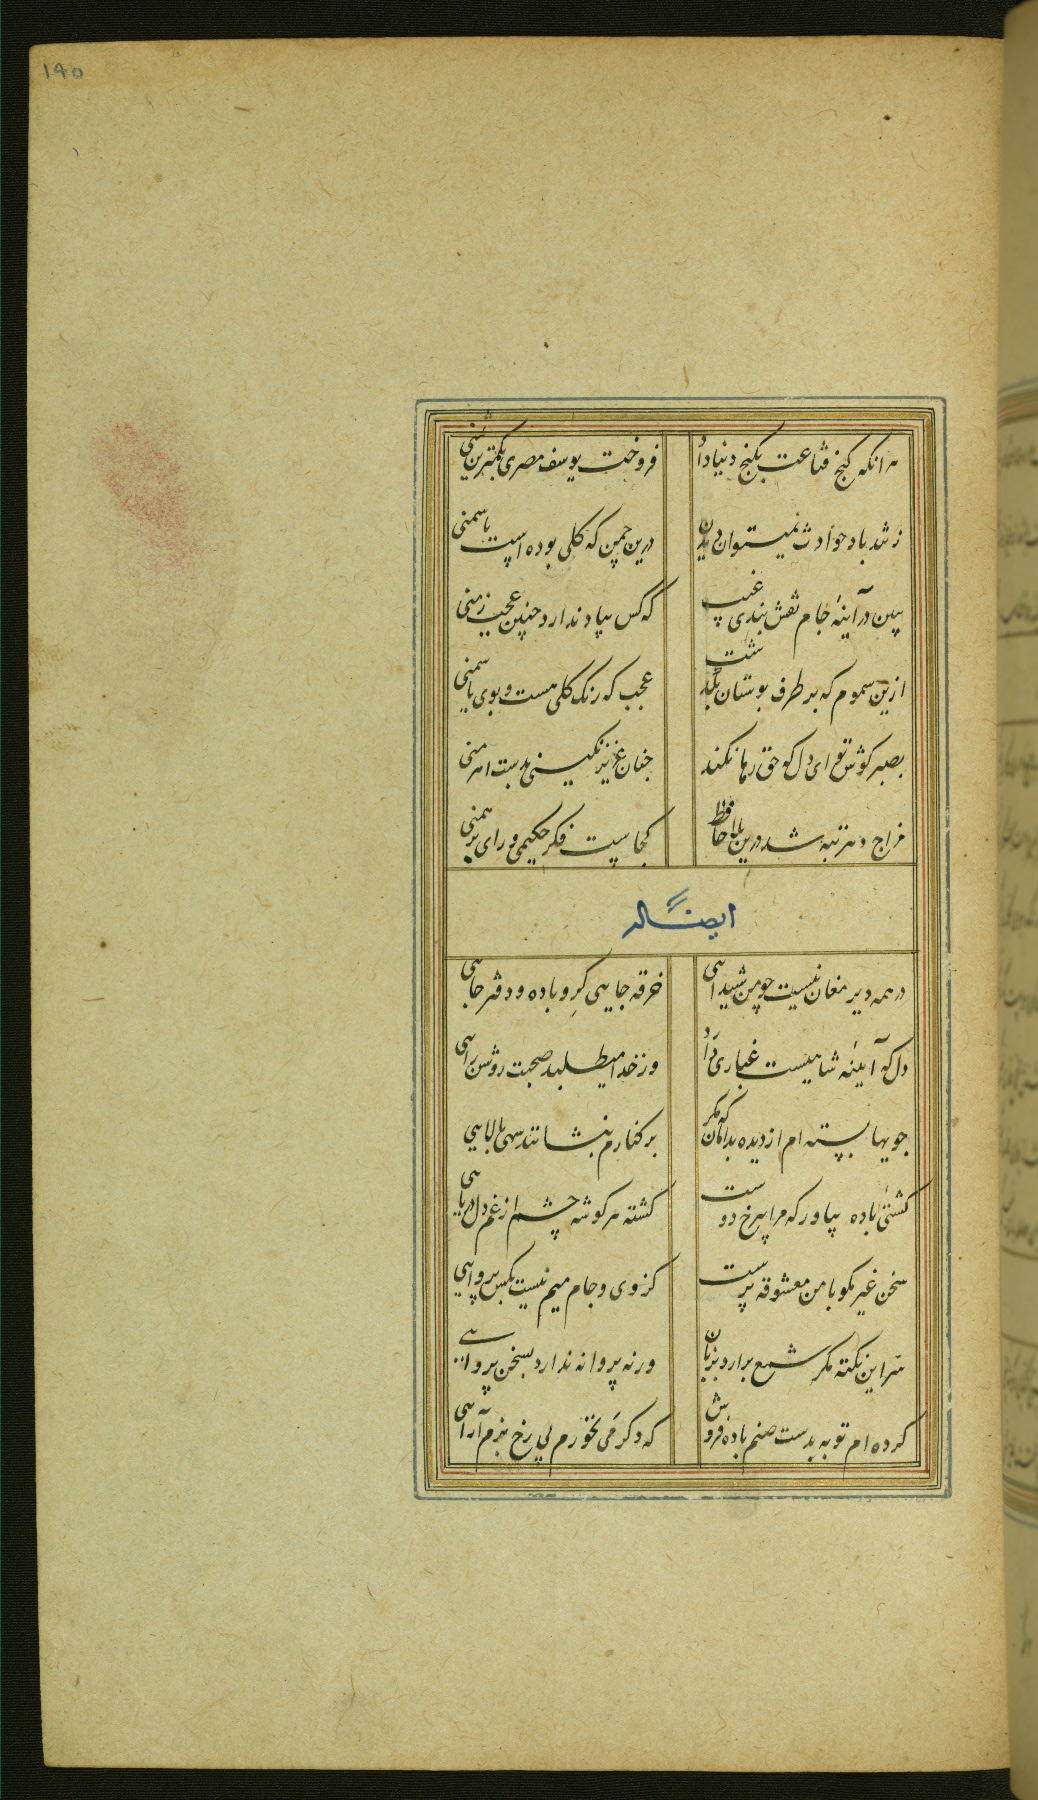 ۱۹۵
هر انکه کنج قناعت بکنج دنیا داد
فروخت یوسف مصری بکمترین ثمنی
ز تند باد حوادث نمیتوان دیدن
درین چمن که کلی بوده است یاسمنی
ببین در آینهٔ جام نقش بندی غیب
که کس بیاد ندارد چنین عجب زمنی
ازین سموم که بر طرف بوستان بگذشت
عجب که رنک کلی هست و بوی یاسمنی
بصبر کوش تو ای دل که حق رها نکند
چنان عزیز نکینی بدست اهرمنی
مزاج دهر تبه شد درین بلا حافظ
کجاست فکر حکیمی و رای برهمنی
ایضاً له
در همه دیر مغان نیست چو من شیدایی
خرقه جایی کرو باده و دفتر جایی
دل که آیینه شاهیست غباری دارد
وز خدا میطلبد صحبت روشن رایی
جویها بسته ام از دیده بدامان که مکر
بر کنارم بنشانند سهی بالایی
کشتی باده بیاور که مرا بی رخ دوست
کشته هر کوشه چشم از غم دل دریایی
سخن غیر مکو با من معشوقه پرست
کز وی و جام میم نیست بکس پروایی
سر این نکته مکر شمع برارد بزبان
ورنه پروانه ندارد بسخن پروایی
کرده ام توبه بدست صنم باده فروش
که دکر می نخورم بی رخ بزم آرایی